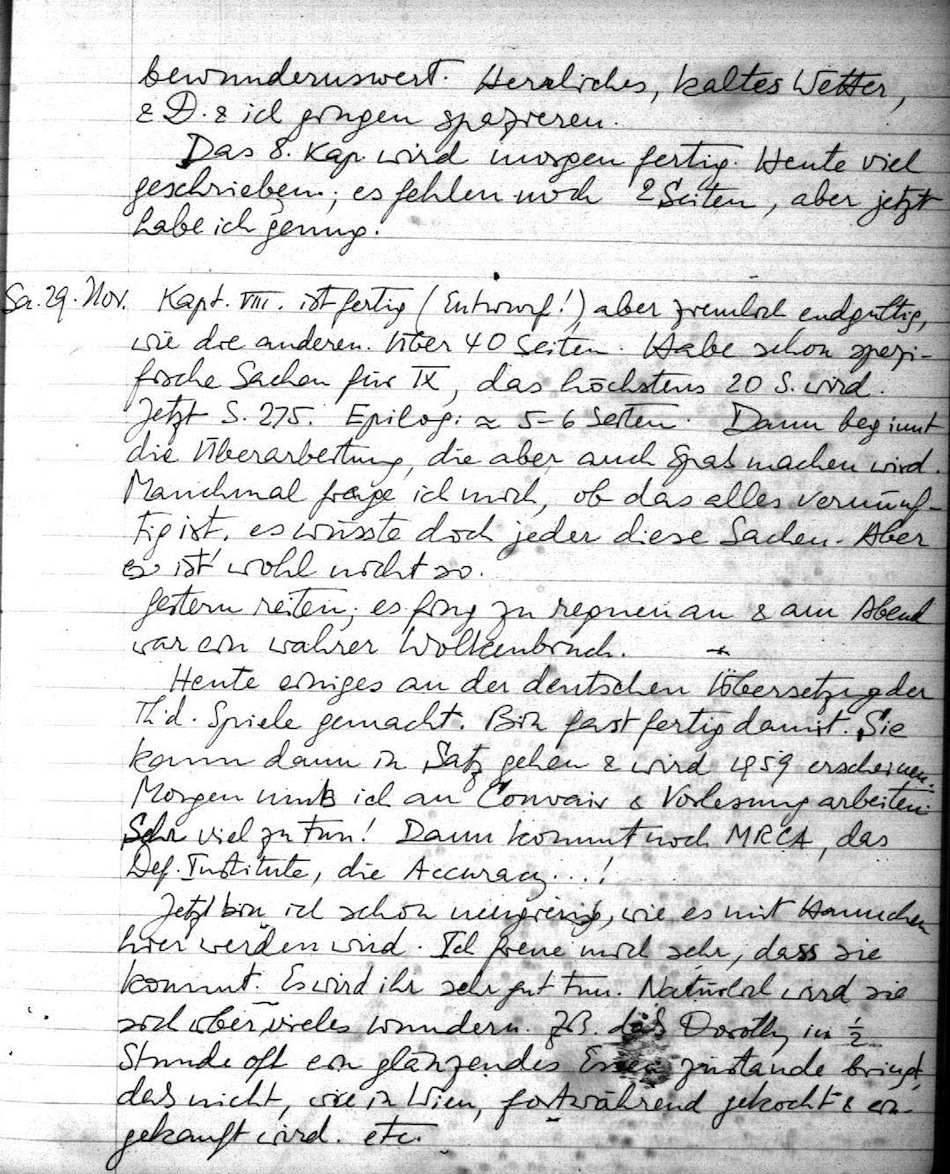 bewundernswert. Herrliches, kaltes Wetter,
& D. & ich gingen spazieren.
Das 8. Kap. wird morgen fertig. Heute viel
geschrieben; es fehlen noch 2 Seiten, aber jetzt
habe ich genug.
Sa. 29. Nov. Kapt. VIII. ist fertig (Entwurf!) aber ziemlich endgültig,
wie die anderen. Über 40 Seiten. Habe schon spezi-
fische Sachen für IX, das höchstens 20 S. wird.
Jetzt S. 275. Epilog: ≈ 5-6 Seiten. Dann beginnt
die Überarbeitung, die aber auch Spaß machen wird.
Manchmal frage ich mich, ob das alles vernünf-
tig ist, es wüsste doch jeder diese Sachen. Aber
es ist wohl nicht so.
Gestern reiten; es fing zu regnen an & am Abend
war ein wahrer Wolkenbruch.
Heute einiges an der deutschen Übersetzung der
Th. d. Spiele gemacht. Bin fast fertig damit. Sie
kann dann in Satz gehen & wird 1959 erscheinen.
Morgen muß ich an Convair & Vorlesung arbeiten.
Sehr viel zu tun! Dann kommt noch MRCA, das
Def. Institute, die Accuracy...!
Jetzt bin ich schon neugierig, wie es mit Hannchen
hier werden wird. Ich freue mich sehr, dass sie
kommt. Es wird ihr sehr gut tun. Natürlich wird sie
sich über vieles wundern. ZB. daß Dorothy in ½
Stunde oft ein glänzendes Essen zustande bringt,
daß nicht, wie in Wien, fortwährend gekocht & ein-
gekauft wird. etc.